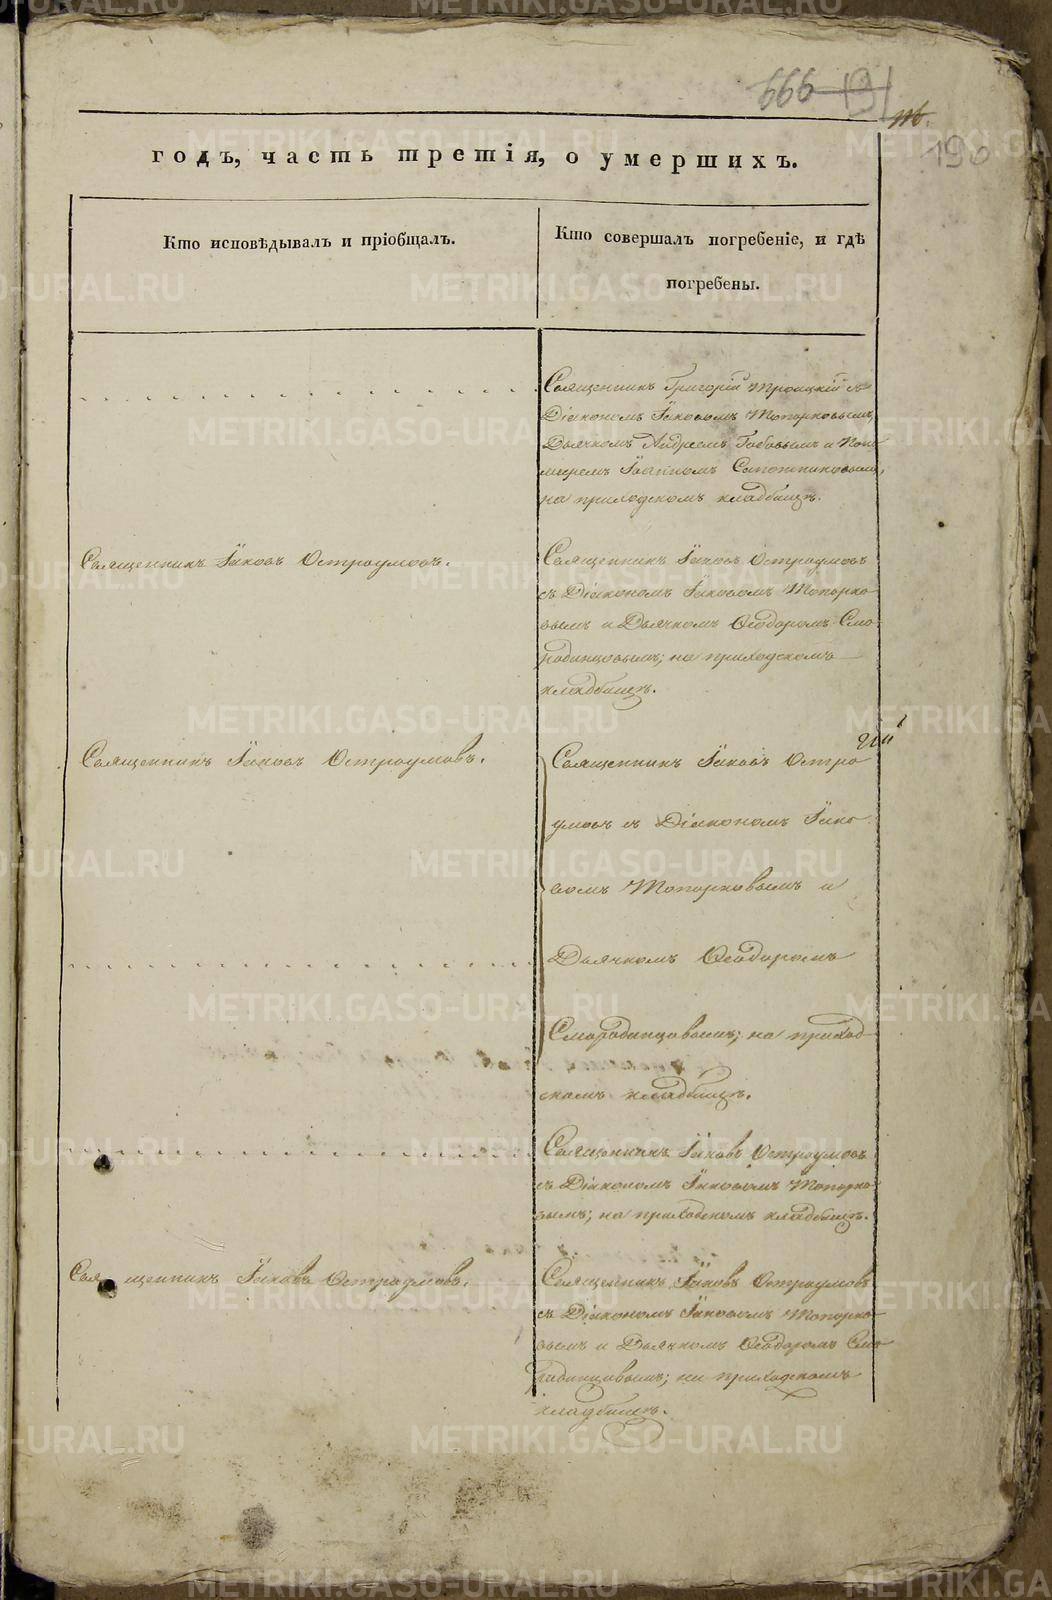 666 191
190
годъ, часть третія, о умершихъ.
Кто исповѣдывалъ и пріобщалъ.
Кто совершалъ погребеніе, и гдѣ
погребены.
Священникъ Григорій Троицкій съ
Діакономъ Іаковомъ Топорковымъ,
Дьячкомъ Андреемъ и Поно
маремъ Іоанномъ Сапожниковымъ,
на приходскомъ кладбищѣ.
Священникъ Іаковъ Остроумовъ.
Священникъ Іаковъ Остроумовъ
съ Діакономъ Іаковомъ Топорко
вымъ и Дьячкомъ Ѳеодоромъ Смо
родинцовымъ; на приходскомъ
кладбищѣ.
Священникъ Іаковъ Остроумовъ.
Священникъ Іаковъ Остро
умовъ съ Діакономъ Іако
вомъ Топорковымъ и
Дьячкомъ Ѳеодоромъ
Смородинцовымъ; на приход
скомъ кладбищѣ.
Священникъ Іаковъ Остроумовъ
съ Діакономъ Іаковомъ Топорко
вымъ; на приходскомъ кладбищѣ.
Священникъ Іаковъ Остроумовъ.
Священникъ Іаковъ Остроумовъ
съ Діакономъ Іаковомъ Топорко
вымъ и Дьячкомъ Ѳеодоромъ Смо
родинцовымъ; на приходскомъ
кладбищѣ.
METRIKI.GASO-URAL.RU